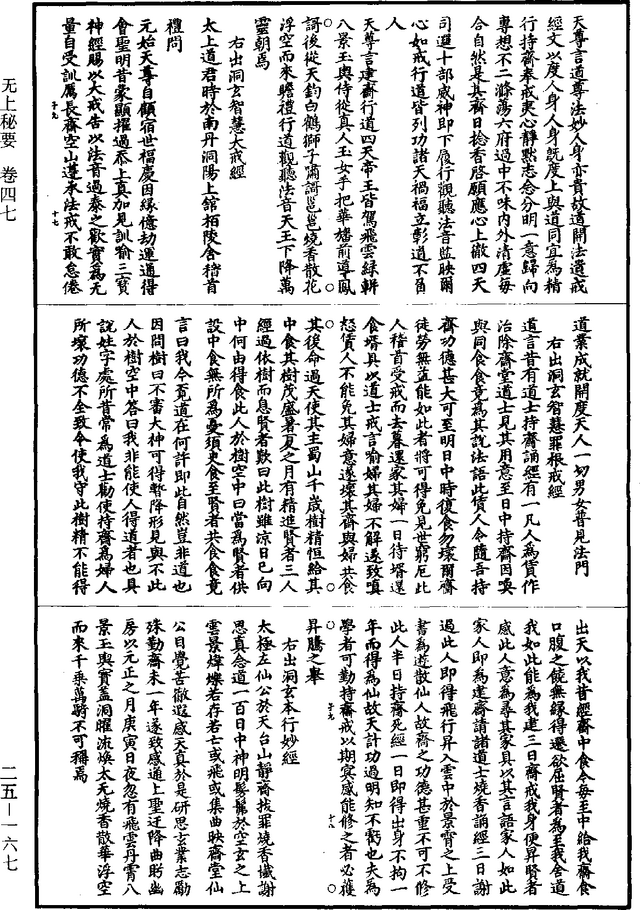 天尊言道尊法妙人身亦貴故道開法遺戒
經文以度人身人身既度上與道同宜為精
行持齋奉戒夷心靜默志念分明一意歸向
專想不二滌蕩六府過中不味內外清虛每
合自然是其齋日捻香啓願應心上徹四天
司遝十部威神即下履行觀聽法音監映爾
心如戒行道皆列功諸天禍福立彰道不負
人
天尊言建齋行道四天帝王皆駕飛雲綠軿
八景玉輿侍從真人玉女手把華旛前導鳳
謌後從天鈞白鶴獅子嘯謌邕邕燒香散花
浮空而來瞻禮行道觀聽法音天王下降萬
靈朝焉
右出洞玄智慧大戒經
太上道君時於南丹洞陽上館栢陵舍稽首
禮問
元始天尊自顧宿世福慶因緣億劫運通得
會聖明昔蒙顯擢過忝上真加見訓喻三寶
神經賜以大戒告以法音過泰之歡實為无
量自受訓厲長齋空山遵承法戒不敢怠倦
道業成就開度天人一切男女普見法門
右出洞玄智慧罪根戒經
道言昔有道士持齋誦經有一凡人為賃作
治除齋堂道士見其用意至日中持齋因喚
與同食食竟為其說法語此賃人今隨吾持
齋功德甚大可至明日中時復食勿壞爾齋
徒勞無益能如此者將可得免見世窮厄此
人稽首受戒而去暮還家其婦一日待壻還
食壻具以道士戒言喻婦其婦不解遂致嗔
怒賃人不能免其婦意遂壞其齋與婦共食
其後命過天使其主蜀山千歲樹精恒給其
中食其樹茂盛暑夏之月有精進賢者三人
經過依樹而息賢者歎曰此樹雖涼日已向
中何由得食此人於樹空中曰當為賢者供
設中食無所為憂須臾食至賢者共食食竟
言曰我今覓道在何許即此自然豈非道也
因問樹曰不審大神可得暫降形見與不此
人於樹空中答曰我非能使人得道者也具
說姓字處所昔常為道士勸使持齋為婦人
所壞功德不全致令使我守此樹精不能得
出天以我昔經齋中食令每至中給我齋食
口腹之饒無緣得遷欲屈賢者為至我舍道
我如此能為我建三日齋戒我身便昇賢者
感此人意為尋其家具以其言語家人如此
家人即為建齋請諸道士燒香誦經三日謝
過此人即得飛行昇入雲中於景霄之上受
書為遊散仙人故齋之功德甚重不可不修
此人半日持齋死經一日即得出身不拘一
年而得為仙故天計功過明知不虧也夫為
學者可勤持齋戒以期冥感能修之者必獲
昇騰之舉
右出洞玄本行妙經
太極左仙公於天台山靜齋拔罪燒香懺謝
思真念道一百日中神明髣髴於空玄之上
雲景煒爍若存若亡或飛或集曲映齋堂仙
公自覺苦徹遐感天真於是研思玄業志勵
殊勤齋未一年遂致感通上聖迂降曲盻幽
房以元正之月庚寅日夜忽有飛雲丹霄八
景玉輿寶蓋洞曜流煥太无燒香散華浮空
而來千乘萬騎不可稱焉
无上秘要 卷四七
二五—一六七